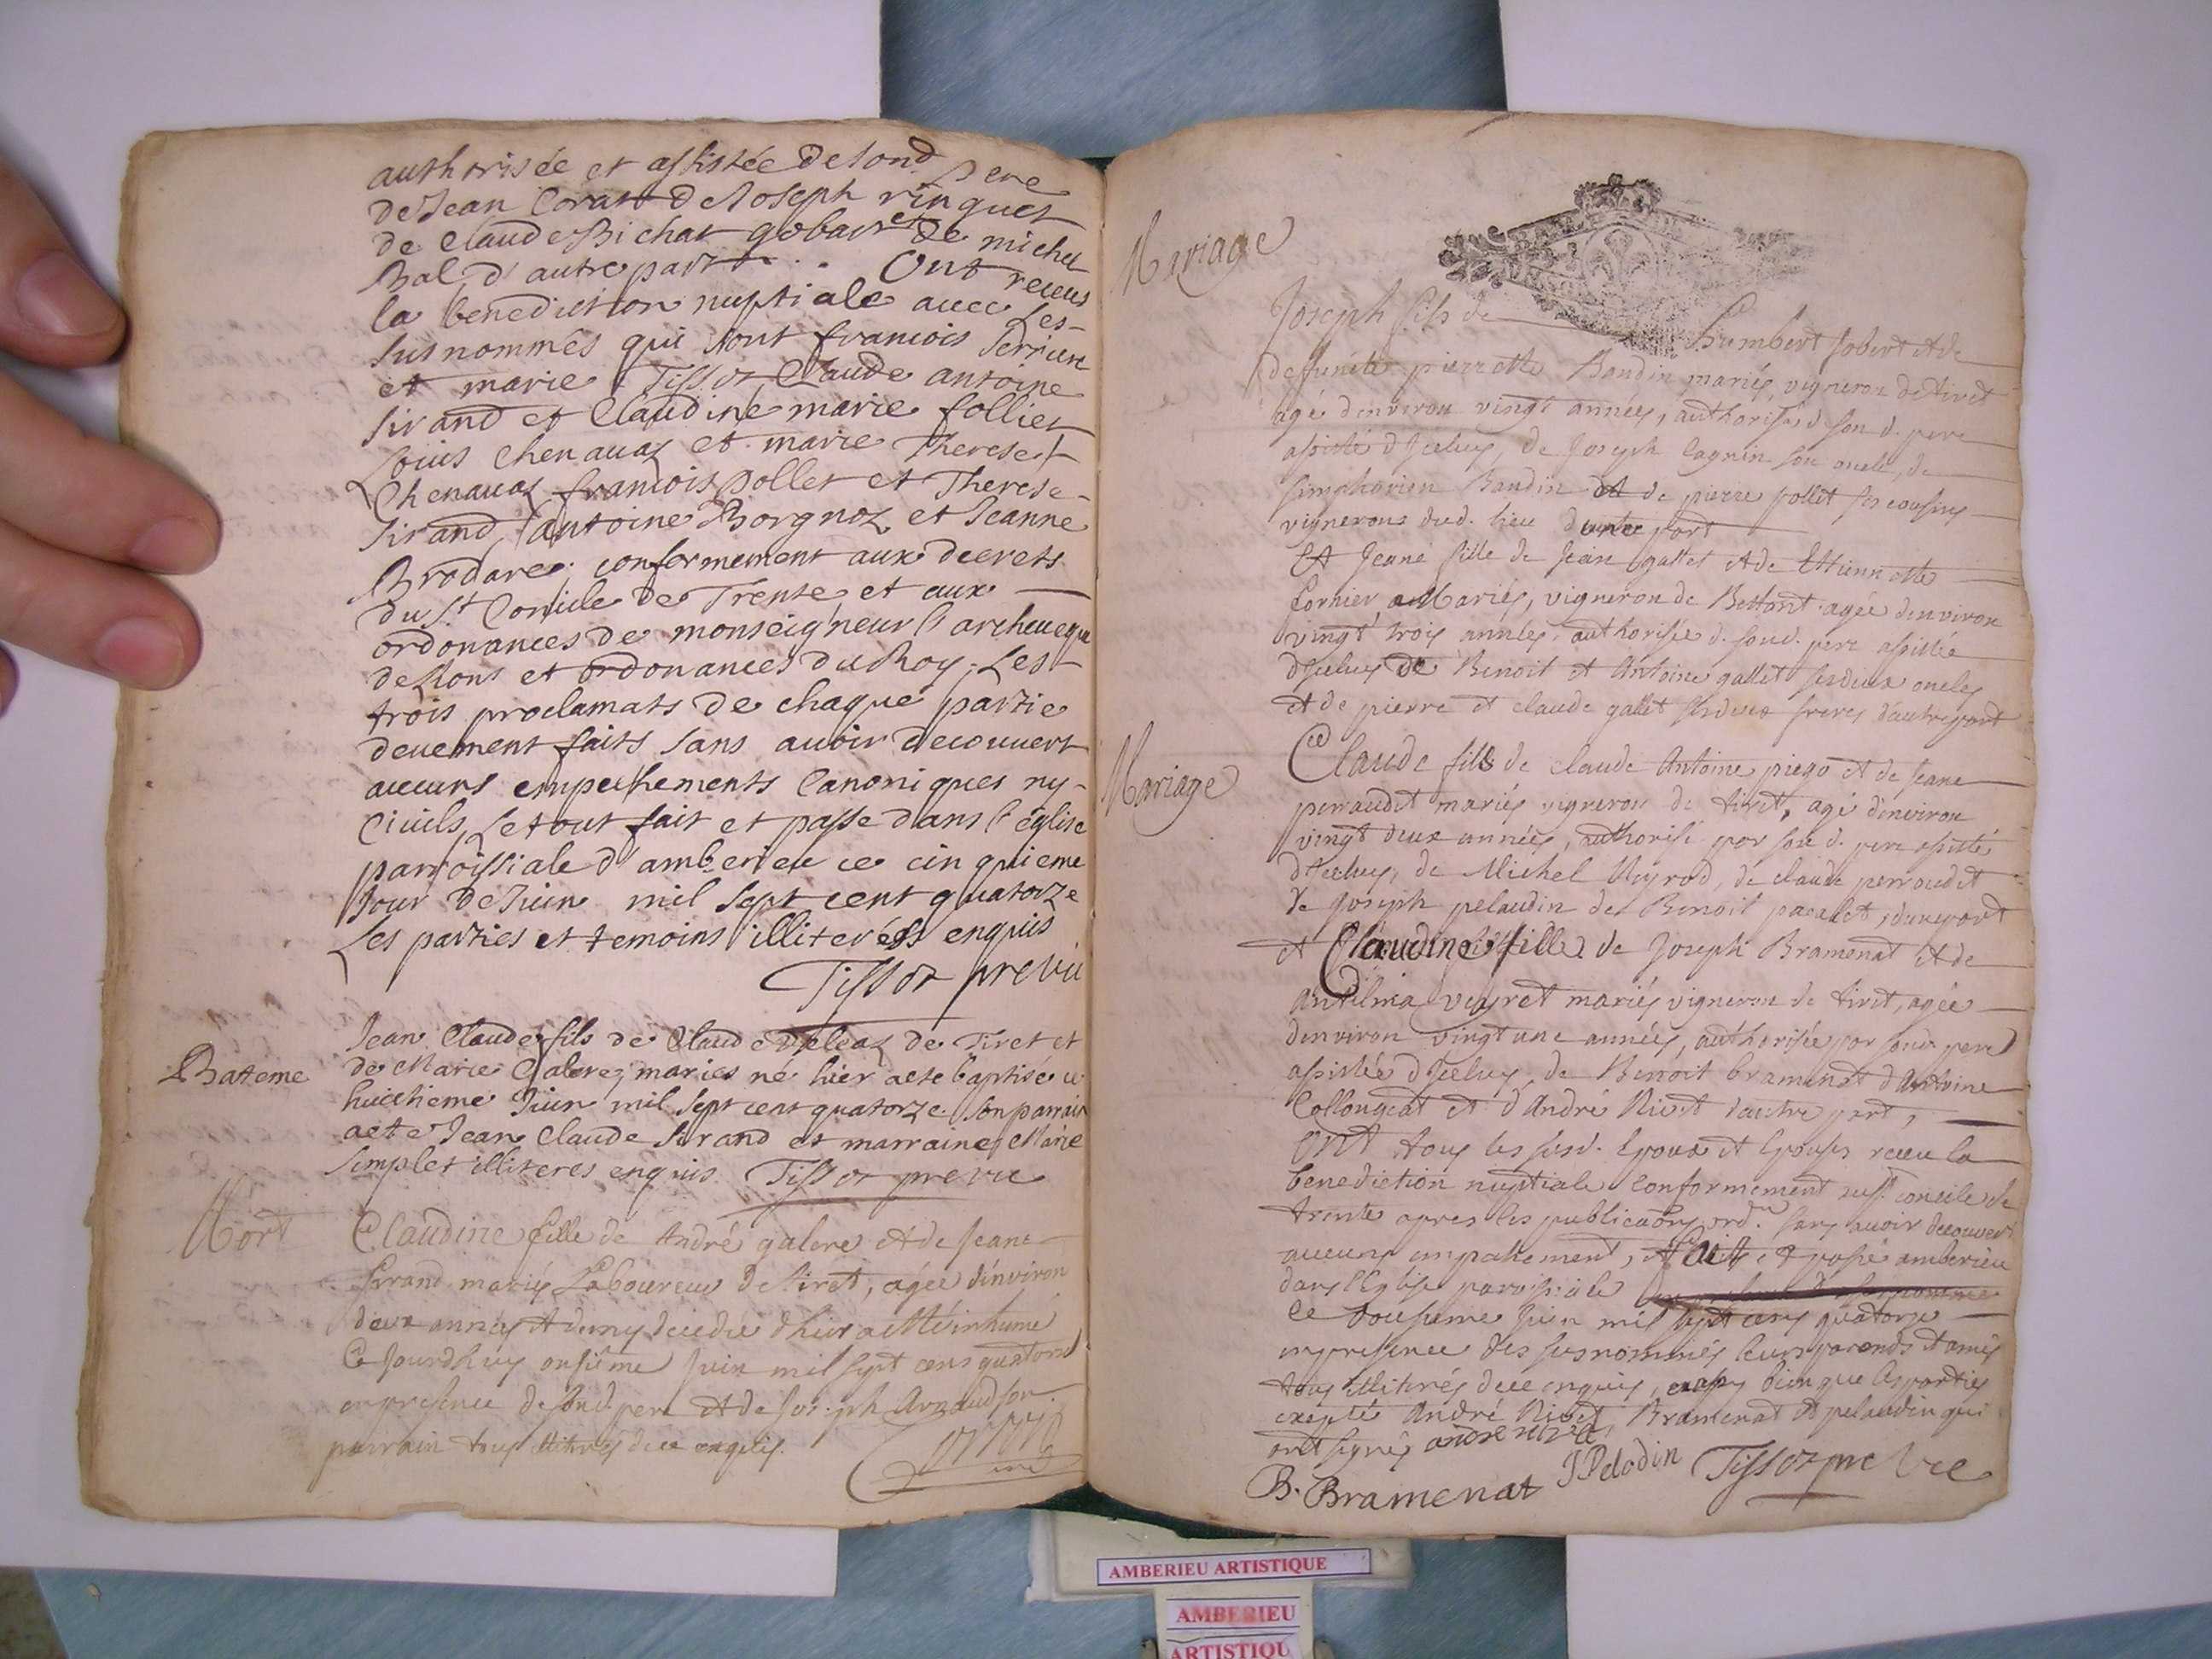 authorisée et assistée de sond. Pere
de Jean Corat de Joseph rinquet
de Claude Bichat gobart et de michel
Bal d'autre part . . Ont receus
la benediction nuptiale avec les
susnommés qui sont francois Perrier
et marie Tissot, Claude antoine
sirand et Claudine marie follier
Louis Chenavaz et marie Therese
Chenavaz francois pollet et Therese
sirand, antoine Borgnoz et Jeanne
Brodare, conformement aux decrets
du St Concile de Trente et aux
ordonances de monseigneur l'archeueque
de Lions et ordonances du Roy; Les
trois proclamats de chaque partie
deuement faits sans auoir decouuert
aucuns empechements Canoniques ny
Ciuils, le tout fait et passe dans l'église
parroissiale d'amberieu ce cinquieme
Jour de Juin mil sept cent quatorze
Les parties et temoins illiterés enquis
Tissot precu
Bateme
Jean Claude fils de Claude Deleaz de Tiret et
de Marie Galere, mariés né hier a ete baptisé ce
huictieme Juin mil sept cent quatorze. son parrain
a ete Jean Claude sirand et marraine Marie
simplet illiteres enquis. Tissot precu
Mort
Claudine fille de André galere et de Jeane
sirand mariés Laboureur de Tiret, agée d'environ
deux années et demy decedée d'hier a esté inhumé
Ce Jourdhuy onsième Juin mil sept cens quatorse
en presence de sond. pere et de Joseph Arnaud son
parrain tous illiterés de ce enquis.
Mariage
Joseph fils de Humbert Jobert et de
defuncte pierrette Baudin mariés, vigneron de tiret
agé denviron vingt années, authorisé d. son d. pere
assisté d'Jceluy, de Joseph Cagnin son oncle, de
simphorien Baudin et de pierre pollet ses cousins
vignerons dud. lieu d'une part
Et Jeane fille de Jean gallet et de Ettiennette
fornier Mariés, vigneron de Bettant agée denviron
vingt trois années, authorisée d. sond. pere assistée
d'Jceluy de Benoit et Antoine gallet ses deux oncles
et de pierre et claude gallet ses deux freres d'autre part
Mariage
Claude fils de claude Antoine piego et de Jeane
perraudet mariés vigneron de tiret, agé denviron
vingt deux années, authorisé par son d. pere assisté
d'Jceluy, de Michel Neyrod, de claude perroudet
de Joseph pelaudin de Benoit pacalet, d'une part
et Claudine fille de Joseph Bramenat et de
Antelma veyret mariés vigneron de tiret, agée
denviron vingt une années, authorisée par sond. pere
assistée d'Jceluy, de Benoit bramenat d'Antoine
Collongeat et d'André Rivet d'autre part,
ONT tous les susd. Epoux et Epouses receu la
benediction nuptiale conformement au st concile de
trente apres les publicaõns ord.res sans avoir decouvert
aucuns empechement, fait, et passé amberieu
dans l'Eglise paroissiale
Ce dousieme Juin mil sept cens quatorse
en presence des susnommés leurs parends et amis
tous illiterés de ce enquis, bien que les parties
excepté André Rivet, Bramenat et pelaudin qui
ont signés andre rivet
B. Bramenat J Pelodin Tissot precu
AMBERIEU ARTISTIQUE
AMBERIEU
ARTISTIQU